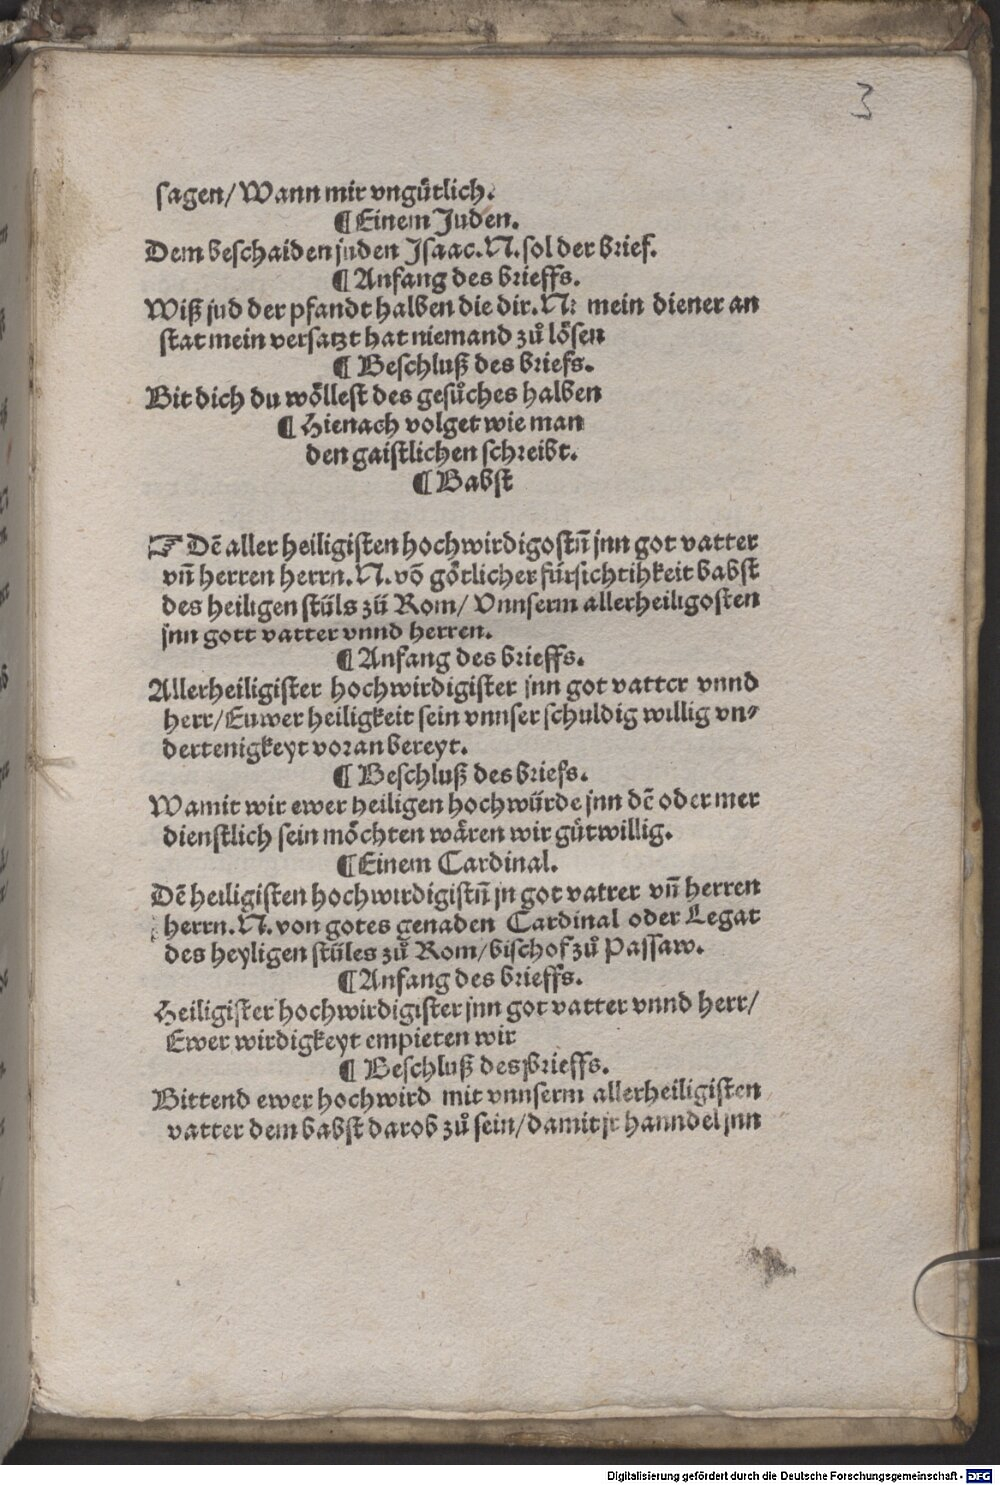 3
sagen/ Wann mir vngütlich.
¶ Einem Juden.
Dem beschaiden juden Isaac. N. sol der brief.
¶ Anfang des brieffs.
Wiß jud der pfandt halben die dir. N. mein diener an
stat mein versatzt hat niemand zů lösen
¶ Beschluß des briefs.
Bit dich du wöllest des gesůches halben
¶ Hienach volget wie man
den gaistlichen schreibt.
¶ Babst
☞ Dē aller heiligisten hochwirdigostn̄ jnn got vatter
vn̄ herren herrn. N. vō götlicher fürsichtihkeit babst
des heiligen stüls zü Rom/ Vnnserm allerheiligosten
jnn gott vatter vnnd herren.
¶ Anfang des brieffs.
Allerheiligister hochwirdigister jnn got vatter vnnd
herr/ Euwer heiligkeit sein vnnser schuldig willig vn⸗
dertenigkeyt voran bereyt.
¶ Beschluß des briefs.
Wamit wir ewer heiligen hochwürde jnn dē oder mer
dienstlich sein möchten wären wir gütwillig.
¶ Einem Cardinal.
Dē heiligisten hochwirdigistn̄ jn got vatrer vn̄ herren
herrn. N. von gotes genaden Cardinal oder Legat
des heyligen stüles zů Rom/ bischof zů Passaw.
¶ Anfang des brieffs.
Heiligister hochwirdigister jnn got vatter vnnd herr/
Ewer wirdigkeyt empieten wir
¶ Beschluß des brieffs.
Bittend ewer hochwird mit vnnserm allerheiligisten
vatter dem babst darob zů sein/ damit jr hanndel jnn
Digitalisierung gefördert durch die Deutsche Forschungsgemeinschaft - DFG